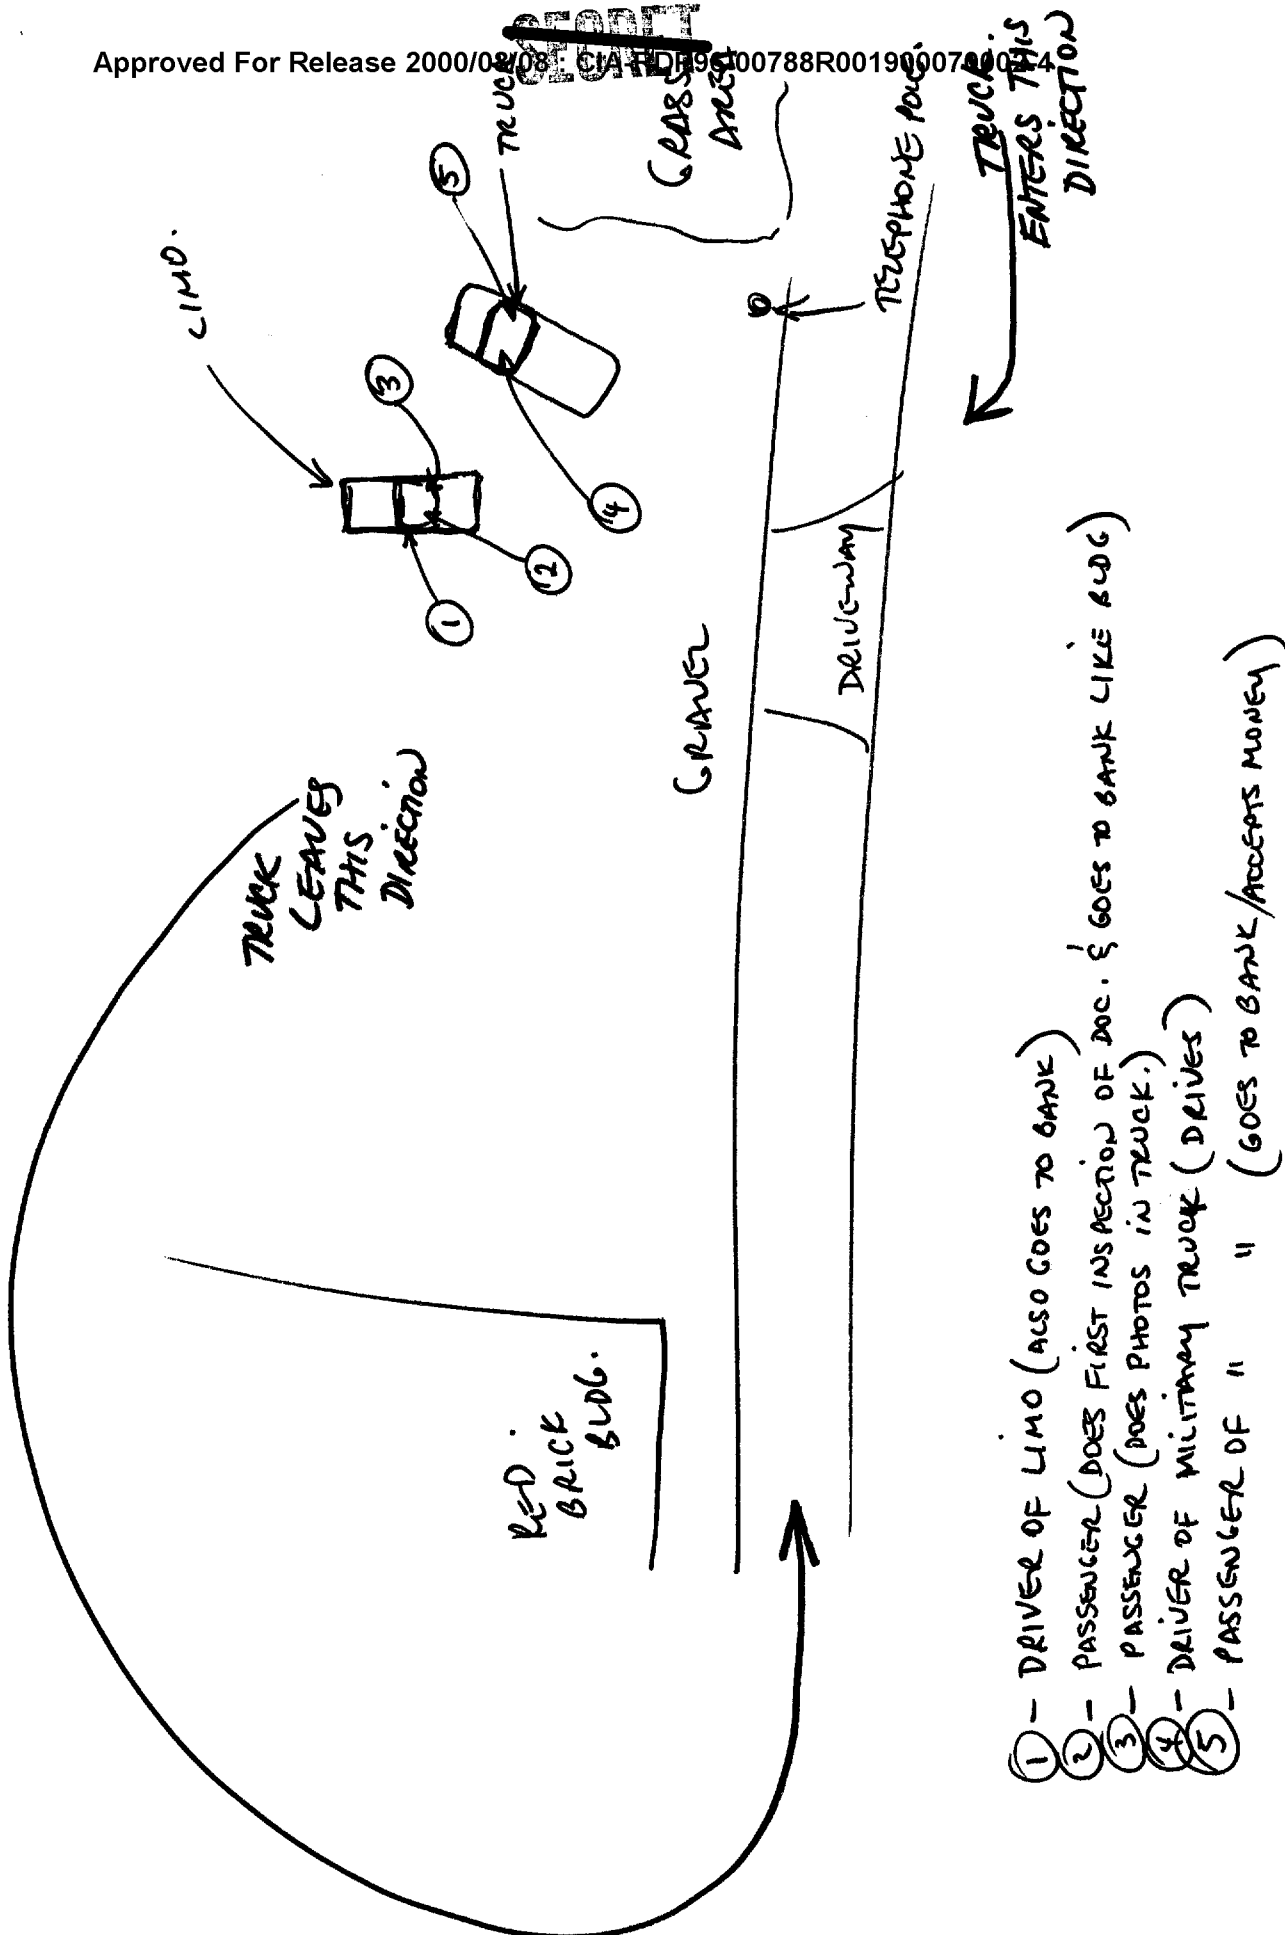 SECRET
Approved For Release 2000/08/08 : CIA-RDP96-00788R001900070002-4
LIMO.
TRUCK
GRASS
AREA
TELEPHONE POLE.
TRUCK.
ENTERS THIS
DIRECTION
5
3
4
2
1
TRUCK
LEAVES
THIS
DIRECTION
GRAVEL
DRIVEWAY
RED
BRICK
BLDG.
1 - DRIVER OF LIMO (ALSO GOES TO BANK)
2 - PASSENGER (DOES FIRST INSPECTION OF DOC. & GOES TO BANK LIKE BLDG)
3 - PASSENGER (DOES PHOTOS IN TRUCK.)
4 - DRIVER OF MILITARY TRUCK (DRIVES)
5 - PASSENGER OF " " (GOES TO BANK/ACCEPTS MONEY)